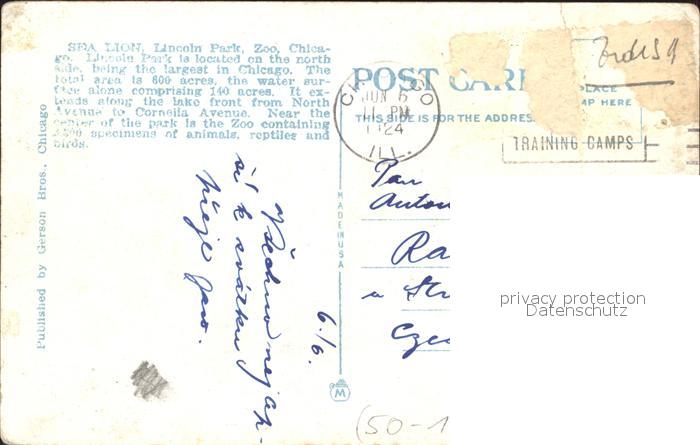 SEA LION, Lincoln Park, Zoo, Chica-
go. Lincoln Park is located on the north
side, being the largest in Chicago. The
total area is 600 acres, the water sur-
face alone comprising 140 acres. It ex-
tends along the lake front from North
Avenue to Cornelia Avenue. Near the
center of the park is the Zoo containing
specimens of animals, reptiles and
birds.
Published by Gerson Bros., Chicago
POST CAR
PLACE
MP HERE
THIS SIDE IS FOR THE ADDRES
CHICAGO
JUN 6
11 PM
1924
ILL.
TRAINING CAMPS
MADE IN USA
M
Všechno nejlep-
ší k svátku
přeje
6./6.
Pan
Anton
Ra
u Str
privacy protection
Datenschutz
(50-1